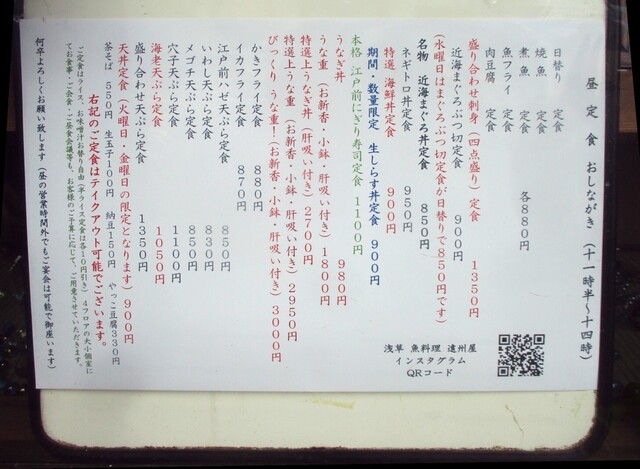 昼定食 おしながき (十一時半～十四時)
日替り 定食
焼魚 定食
煮魚 定食
魚フライ 定食
肉豆腐 定食
各880円
盛り合わせ刺身(四点盛り)定食 1350円
近海まぐろぶつ切定食 900円
(水曜日はまぐろぶつ切定食が日替りで850円です)
名物 近海まぐろ丼定食 850円
ネギトロ丼定食 950円
特選 海鮮丼定食 900円
期間・数量限定 生しらす丼定食 900円
本格 江戸前にぎり寿司定食 1100円
うなぎ丼 980円
うな重 (お新香・小鉢・肝吸い付き) 1800円
特選上うなぎ丼(肝吸い付き) 2700円
特選上うな重 (お新香・小鉢・肝吸い付き) 2950円
びっくり うな重!(お新香・小鉢・肝吸い付き) 3000円
かきフライ定食 880円
イカフライ定食 870円
江戸前ハゼ天ぷら定食 850円
いわし天ぷら定食 830円
メゴチ天ぷら定食 850円
穴子天ぷら定食 1100円
海老天ぷら定食 1050円
盛り合わせ天ぷら定食 1350円
天丼定食 (火曜日・金曜日の限定となります) 900円
茶そば 550円 生玉子100円 納豆150円 やっこ豆腐330円
右記のご定食はテイクアウト可能でございます。
ご定食はライス、お味噌汁お替り自由(半ライス定食は各10円引き) 4フロアの大小個室に
てお食事・ご会食・ご昼食会議等も、お客様のご予算に応じて、ご用意させていただきます。
何卒よろしくお願い致します (昼の営業時間外でもご宴会は可能で御座います)
浅草 魚料理 遠州屋
インスタグラム
QRコード